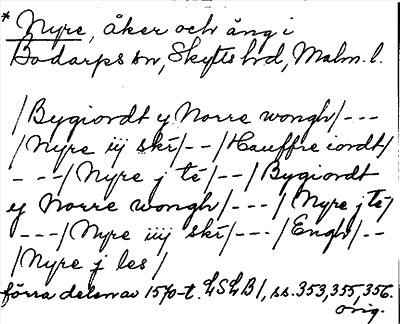 * Nyre, åker och äng i
Bodarps sn, Skytts hd, Malm. l.
/Bygiordt y Norre wongh/---
/Nyre iij skr/--/Hauffre iordt/
---/Nyre j te/--/Bygiordt
y Norre wongh/---/Nyre j te/
---/Nyre iiij skr/---/Engh/--
/Nyre j les/
förra delen av 1570-t. LSLB1, ss. 353, 355, 356.
orig.